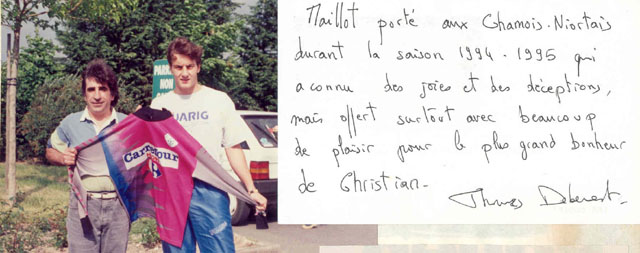 PARK
NON
UARIG
Carrefour
Maillot porté aux Chamois-Niortais
durant la saison 1994-1995 qui
a connu des joies et des déceptions,
mais offert surtout avec beaucoup
de plaisir pour le plus grand bonheur
de Christian-